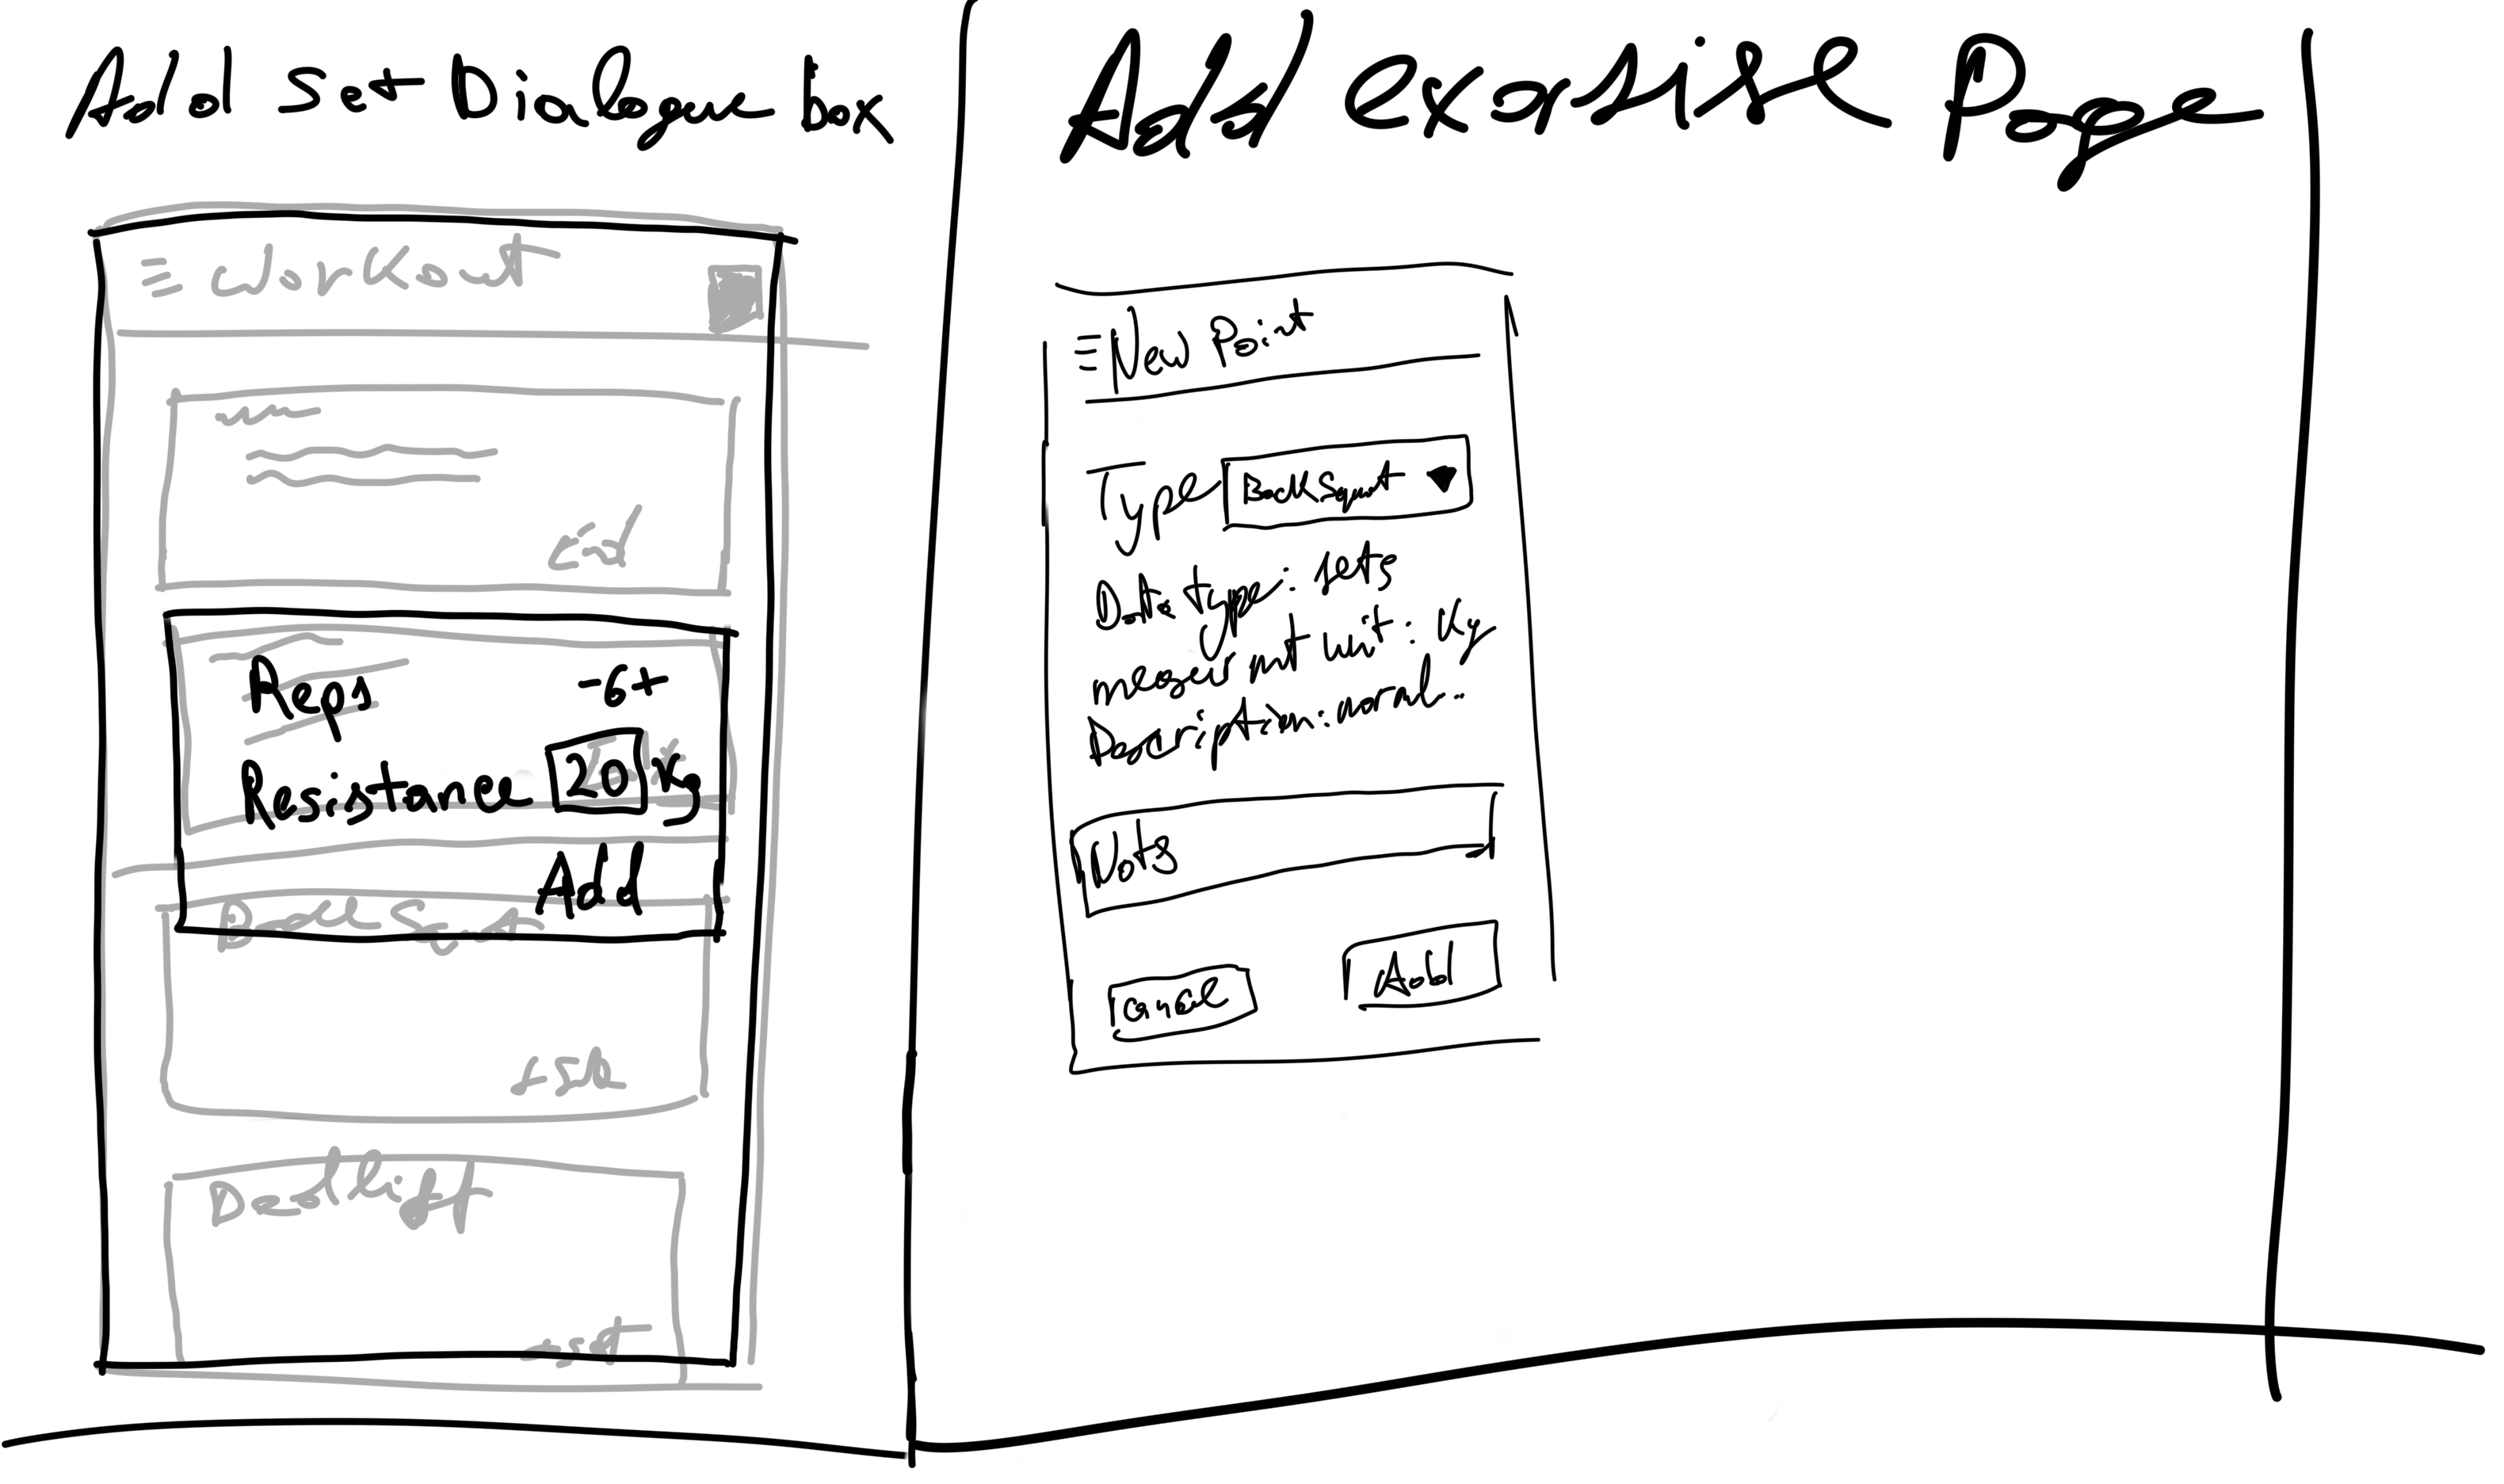 Add Set Dialogue box
Workout
Reps -6+
Resistance 20 Kg
Add
Deadlift
Add exarsise Page
New Point
Type Back Squat
Data type: sets
unit: Kg
Description:
Nots
cancel
Add